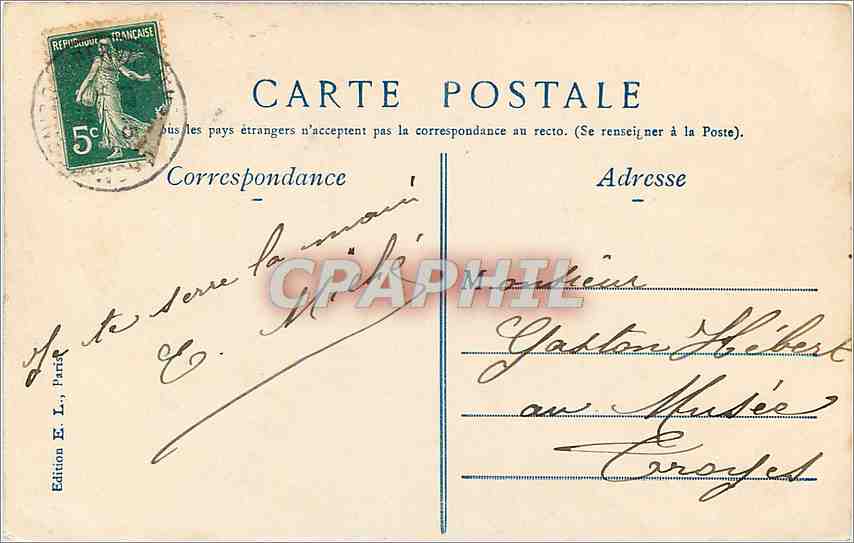 RÉPUBLIQUE FRANÇAISE
5c
CARTE POSTALE
ous les pays étrangers n'acceptent pas la correspondance au recto. (Se renseigner à la Poste).
Correspondance
Adresse
Je te serre la main
E.
CPAPHIL
Monsieur
Gaston Hébert
au Musée
Troyes
Edition E. L., Paris